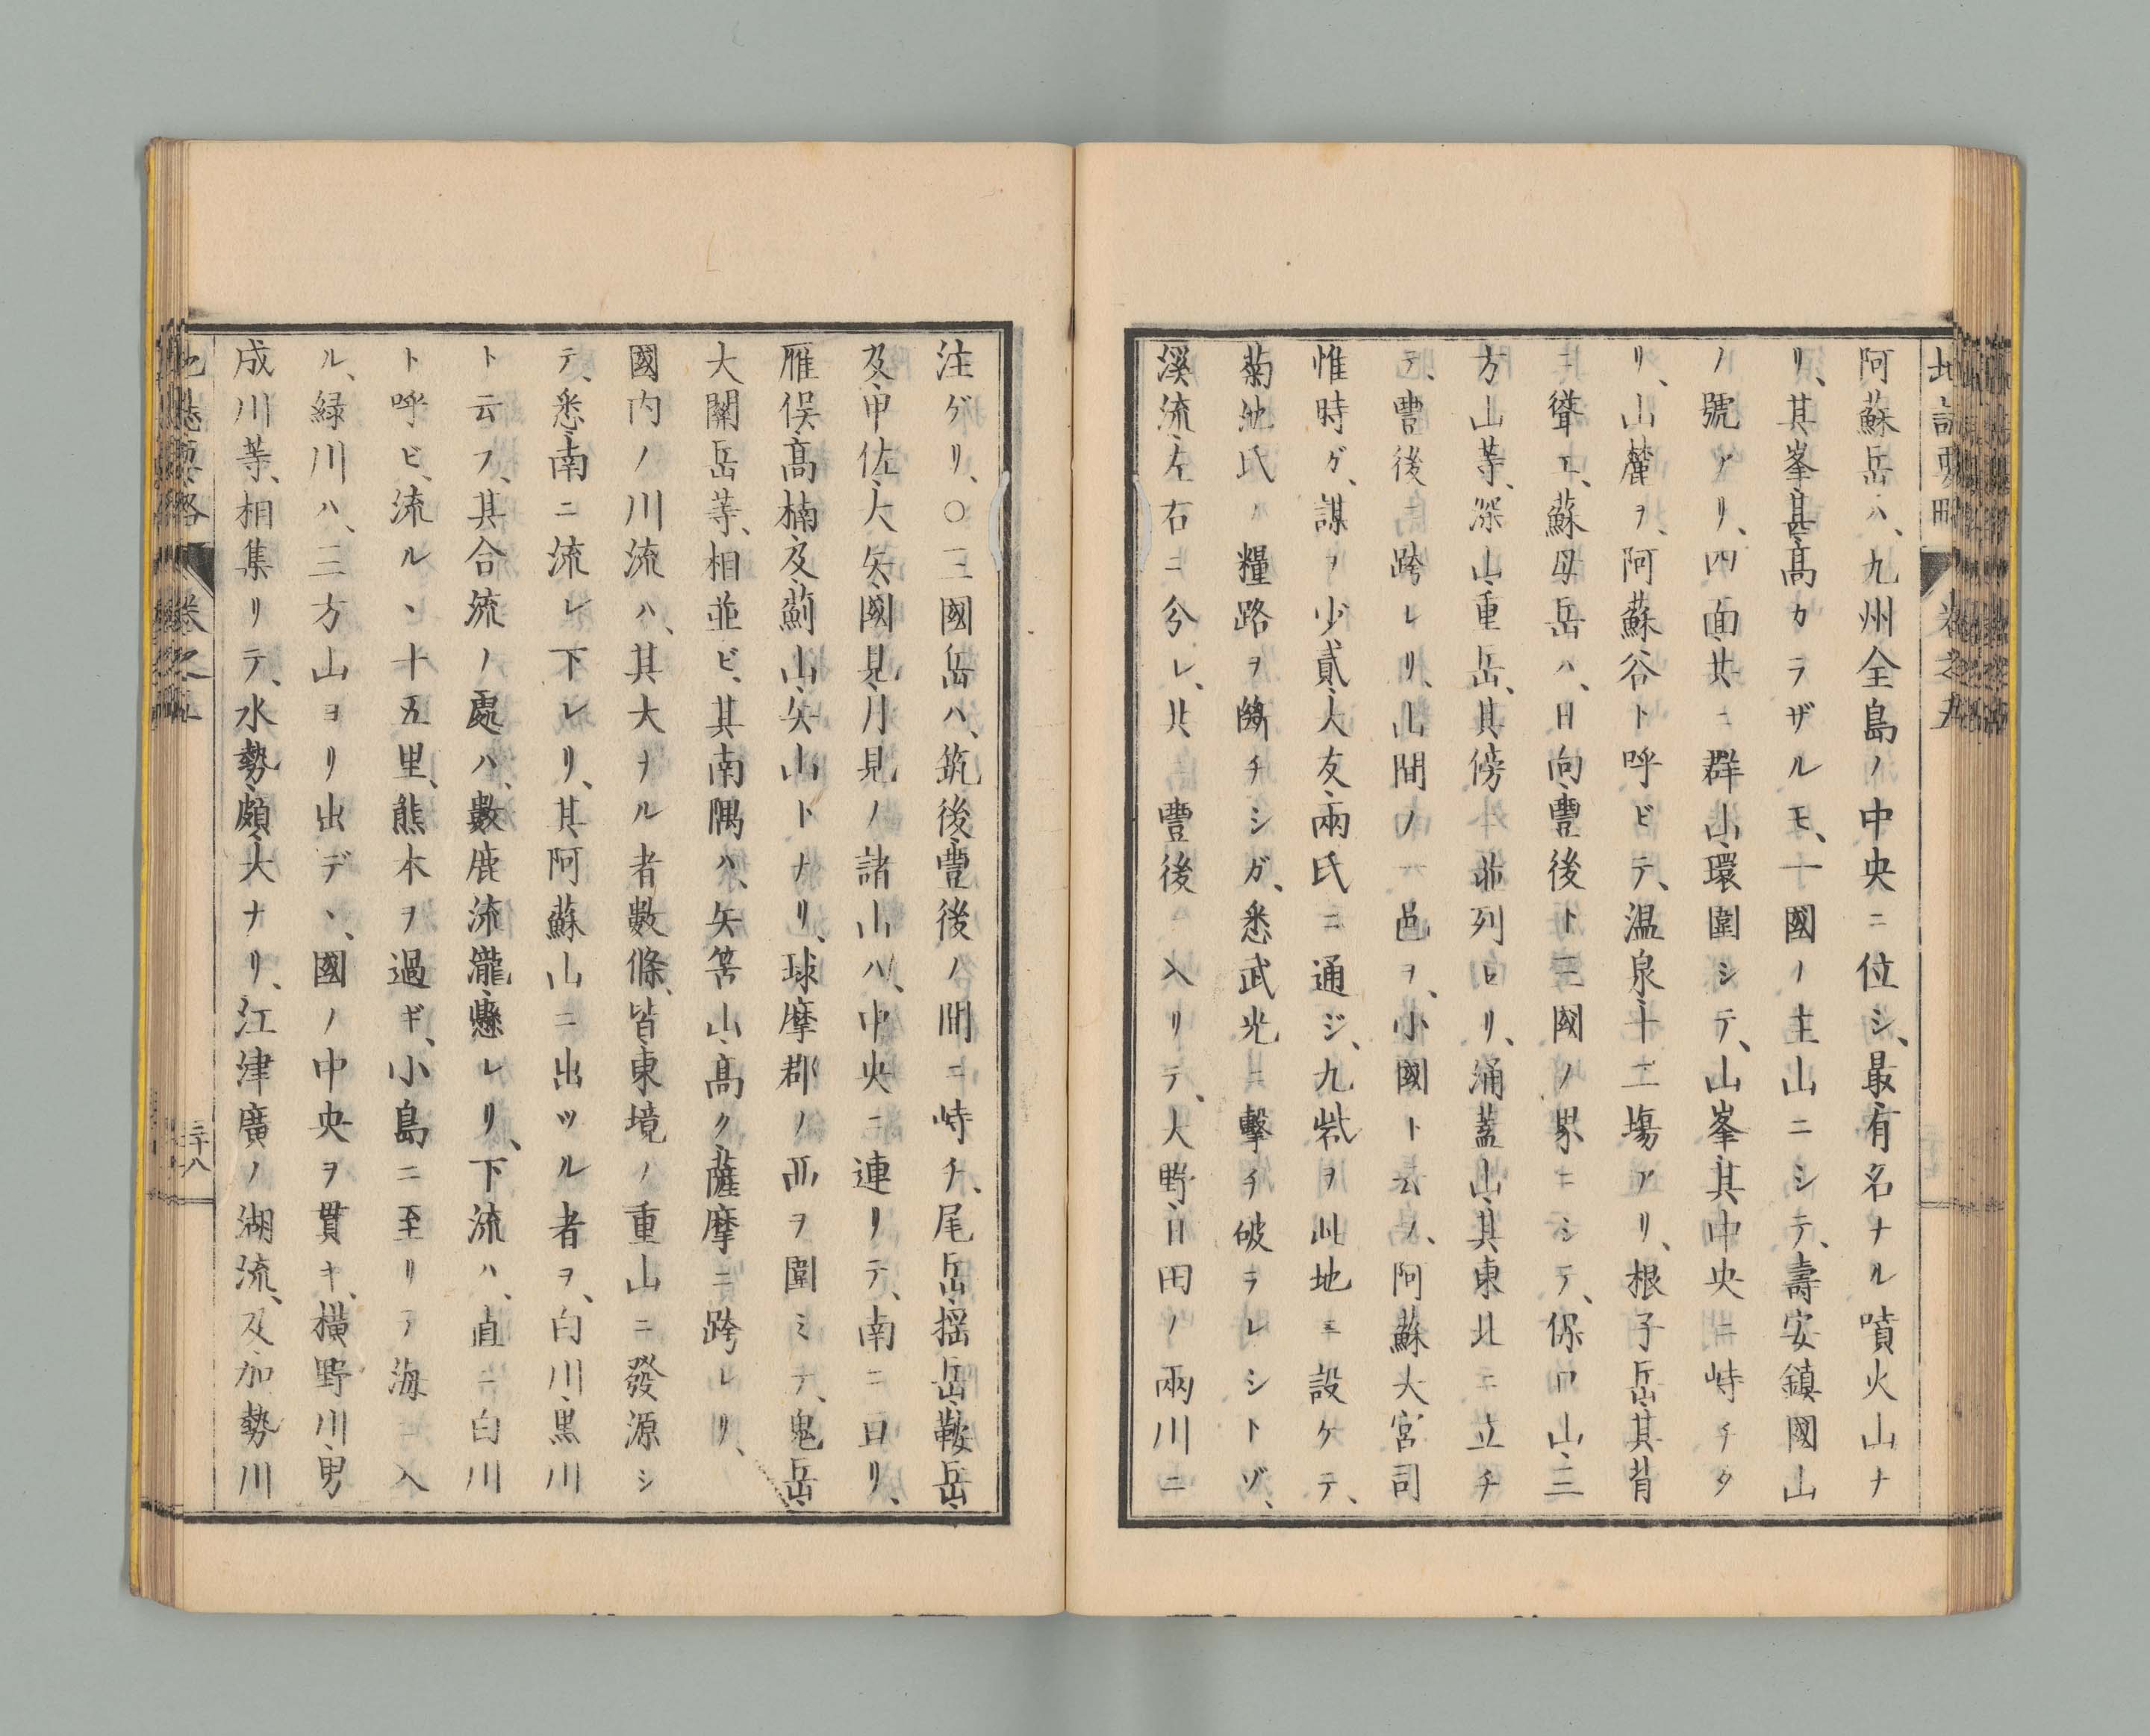 阿蘇岳ハ、九州全島ノ中央ニ位シ、最有名ナル噴火山ナ
リ、其峯甚高カラザルモ、一國ノ主山ニシテ、壽安鎮國山
ノ號アリ、四面共ニ群山環圍シテ、山峯其中央ニ峙チタ
リ、山麓ヲ、阿蘇谷ト呼ビテ、温泉十二塲アリ、根子岳其背
ニ聳エ、蘇母岳ハ、日向豐後ト三國ノ界ニシテ、保口山、三
方山等、深山重岳、其傍ニ排列セリ、涌蓋山、其東北ニ立チ
テ、豐後ニ跨レリ、山間ノ一邑ヲ、小國ト云フ、阿蘇大宮司
惟時ガ、謀ヲ少貳、大友兩氏ニ通ジ、九砦ヲ此地ニ設ケテ、
菊池氏ノ糧路ヲ斷チシガ、悉武光ニ擊チ破ラレシトゾ、
溪流左右ニ分レ、共ニ豐後ニ入リテ、大野、日田ノ兩川ニ
注ゲリ、〇三國岳ハ、筑後豐後ノ間ニ峙チ、尾岳、揺岳、鞍岳、
及甲佐、大矢、國見、月見ノ諸山ハ、中央ニ連リテ、南ニ亘リ、
雁俣、高楠、及薊山、矢山トナリ、球摩郡ノ西ヲ圍ミテ、鬼岳、
大關岳等、相並ビ、其南隅ハ、矢筈山高ク、薩摩ニ跨レリ、
國内ノ川流ハ、其大ナル者數條、皆東境ノ重山ニ發源シ
テ、悉南ニ流レ下レリ、其阿蘇山ニ出ヅル者ヲ、白川、黒川
ト云フ、其合流ノ處ハ、數鹿流瀧懸レリ、下流ハ、直ニ白川
ト呼ビ、流ルヽヿ十五里、熊本ヲ過ギ、小島ニ至リテ海ニ入
ル、緑川ハ、三方山ヨリ出デヽ、國ノ中央ヲ貫キ、横野川、男
成川等、相集リテ、水勢頗大ナリ、江津廣ノ湖流、及加勢川
地誌要略 卷之五
三十八